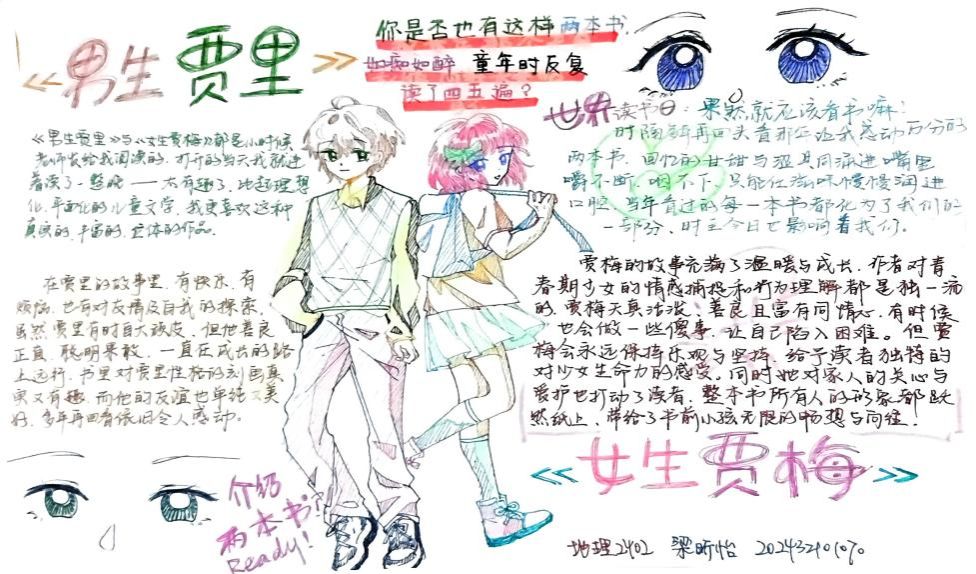 《男生贾里》
你是否也有这样两本书
如痴如醉 童年时反复
读了四五遍?
《男生贾里》与《女生贾梅》都是小时候
老师发给我阅读的,打开的当天我就连
着读了一整晚——太有趣了,比起理想
化、平面化的儿童文学,我更喜欢这种
真实的、丰富的、立体的作品。
在贾里的故事里,有快乐,有
烦恼,也有对友情及自我的探索,
虽然贾里有时自大顽皮,但他善良
正直、聪明果敢,一直在成长的路
上远行,书里对贾里性格的刻画真
实又有趣,而他的友谊也单纯又美
好,多年再回看依旧令人感动。
介绍
两本书!
Ready!
世界读书日:果然就应该看书嘛!
时隔多年再回头看那年让我感动万分的
两本书,回忆的甘甜与涩共同流进嘴里
嚼不断,咽不下,只能任滋味慢慢润进
口腔,当年看过的每一本书都化为了我们的
一部分,时至今日也影响着我们。
贾梅的故事充满了温暖与成长,作者对青
春期少女的情感捕捉和行为理解都是独一流
的,贾梅天真活泼、善良且富有同情心,有时候
也会做一些傻事,让自己陷入困难。但贾
梅会永远保持乐观与坚持,给予读者独特的
对少女生命力的感受。同时她对家人的关心与
爱护也打动了读者,整本书所有人的形象都跃
然纸上,带给了书前小孩无限的畅想与向往。
《女生贾梅》
地理2402 梁昕怡